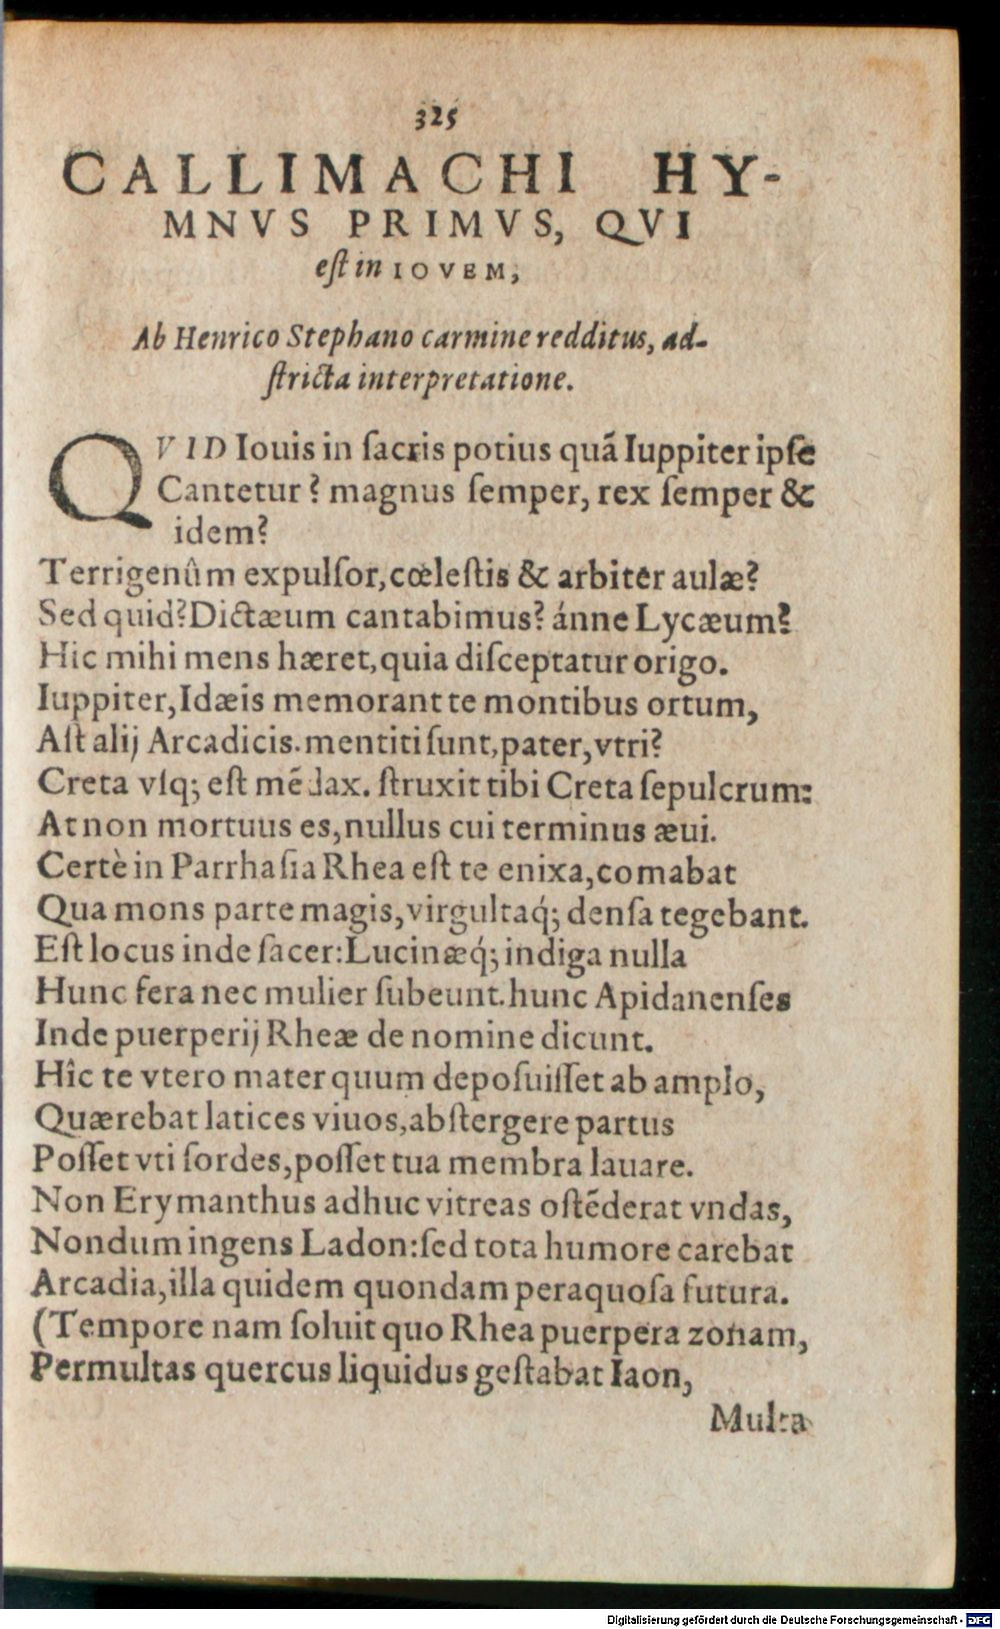 325
CALLIMACHI HY-
MNVS PRIMVS, QVI
eſt in IOVEM,
Ab Henrico Stephano carmine redditus, ad-
ſtricta interpretatione.
QVID Iouis in ſacris potius quã Iuppiter ipſe
Cantetur? magnus ſemper, rex ſemper &
idem?
Terrigenûm expulſor, cœleſtis & arbiter aulæ?
Sed quid? Dictæum cantabimus? ánne Lycæum?
Hic mihi mens hæret, quia diſceptatur origo.
Iuppiter, Idæis memorant te montibus ortum,
Aſt alij Arcadicis. mentiti ſunt, pater, vtri?
Creta vſq; eſt mẽdax. ſtruxit tibi Creta ſepulcrum:
At non mortuus es, nullus cui terminus æui.
Certè in Parrhaſia Rhea eſt te enixa, comabat
Qua mons parte magis, virgultaq́; denſa tegebant.
Eſt locus inde ſacer: Lucinæq́; indiga nulla
Hunc fera nec mulier ſubeunt. hunc Apidanenſes
Inde puerperij Rheæ de nomine dicunt.
Hîc te vtero mater quum depoſuiſſet ab amplo,
Quærebat latices viuos, abſtergere partus
Poſſet vti ſordes, poſſet tua membra lauare.
Non Erymanthus adhuc vitreas oſtẽderat vndas,
Nondum ingens Ladon: ſed tota humore carebat
Arcadia, illa quidem quondam peraquoſa futura.
(Tempore nam ſoluit quo Rhea puerpera zonam,
Permultas quercus liquidus geſtabat Iaon,
Multa
Digitalisierung gefördert durch die Deutsche Forschungsgemeinschaft - DFG